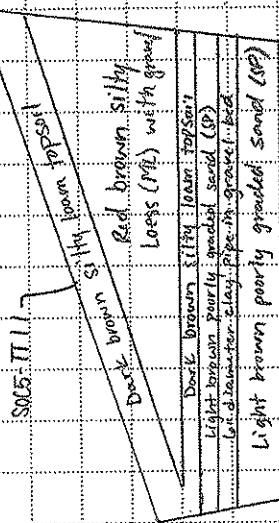 SOC5-TT11
Dark brown silty loam topsoil
Red brown silty
Loess (ML) with gravel
Dark brown silty loam topsoil
Light brown poorly graded sand (SP)
6in diameter clay pipe in gravel bed
Light brown poorly graded sand (SP)